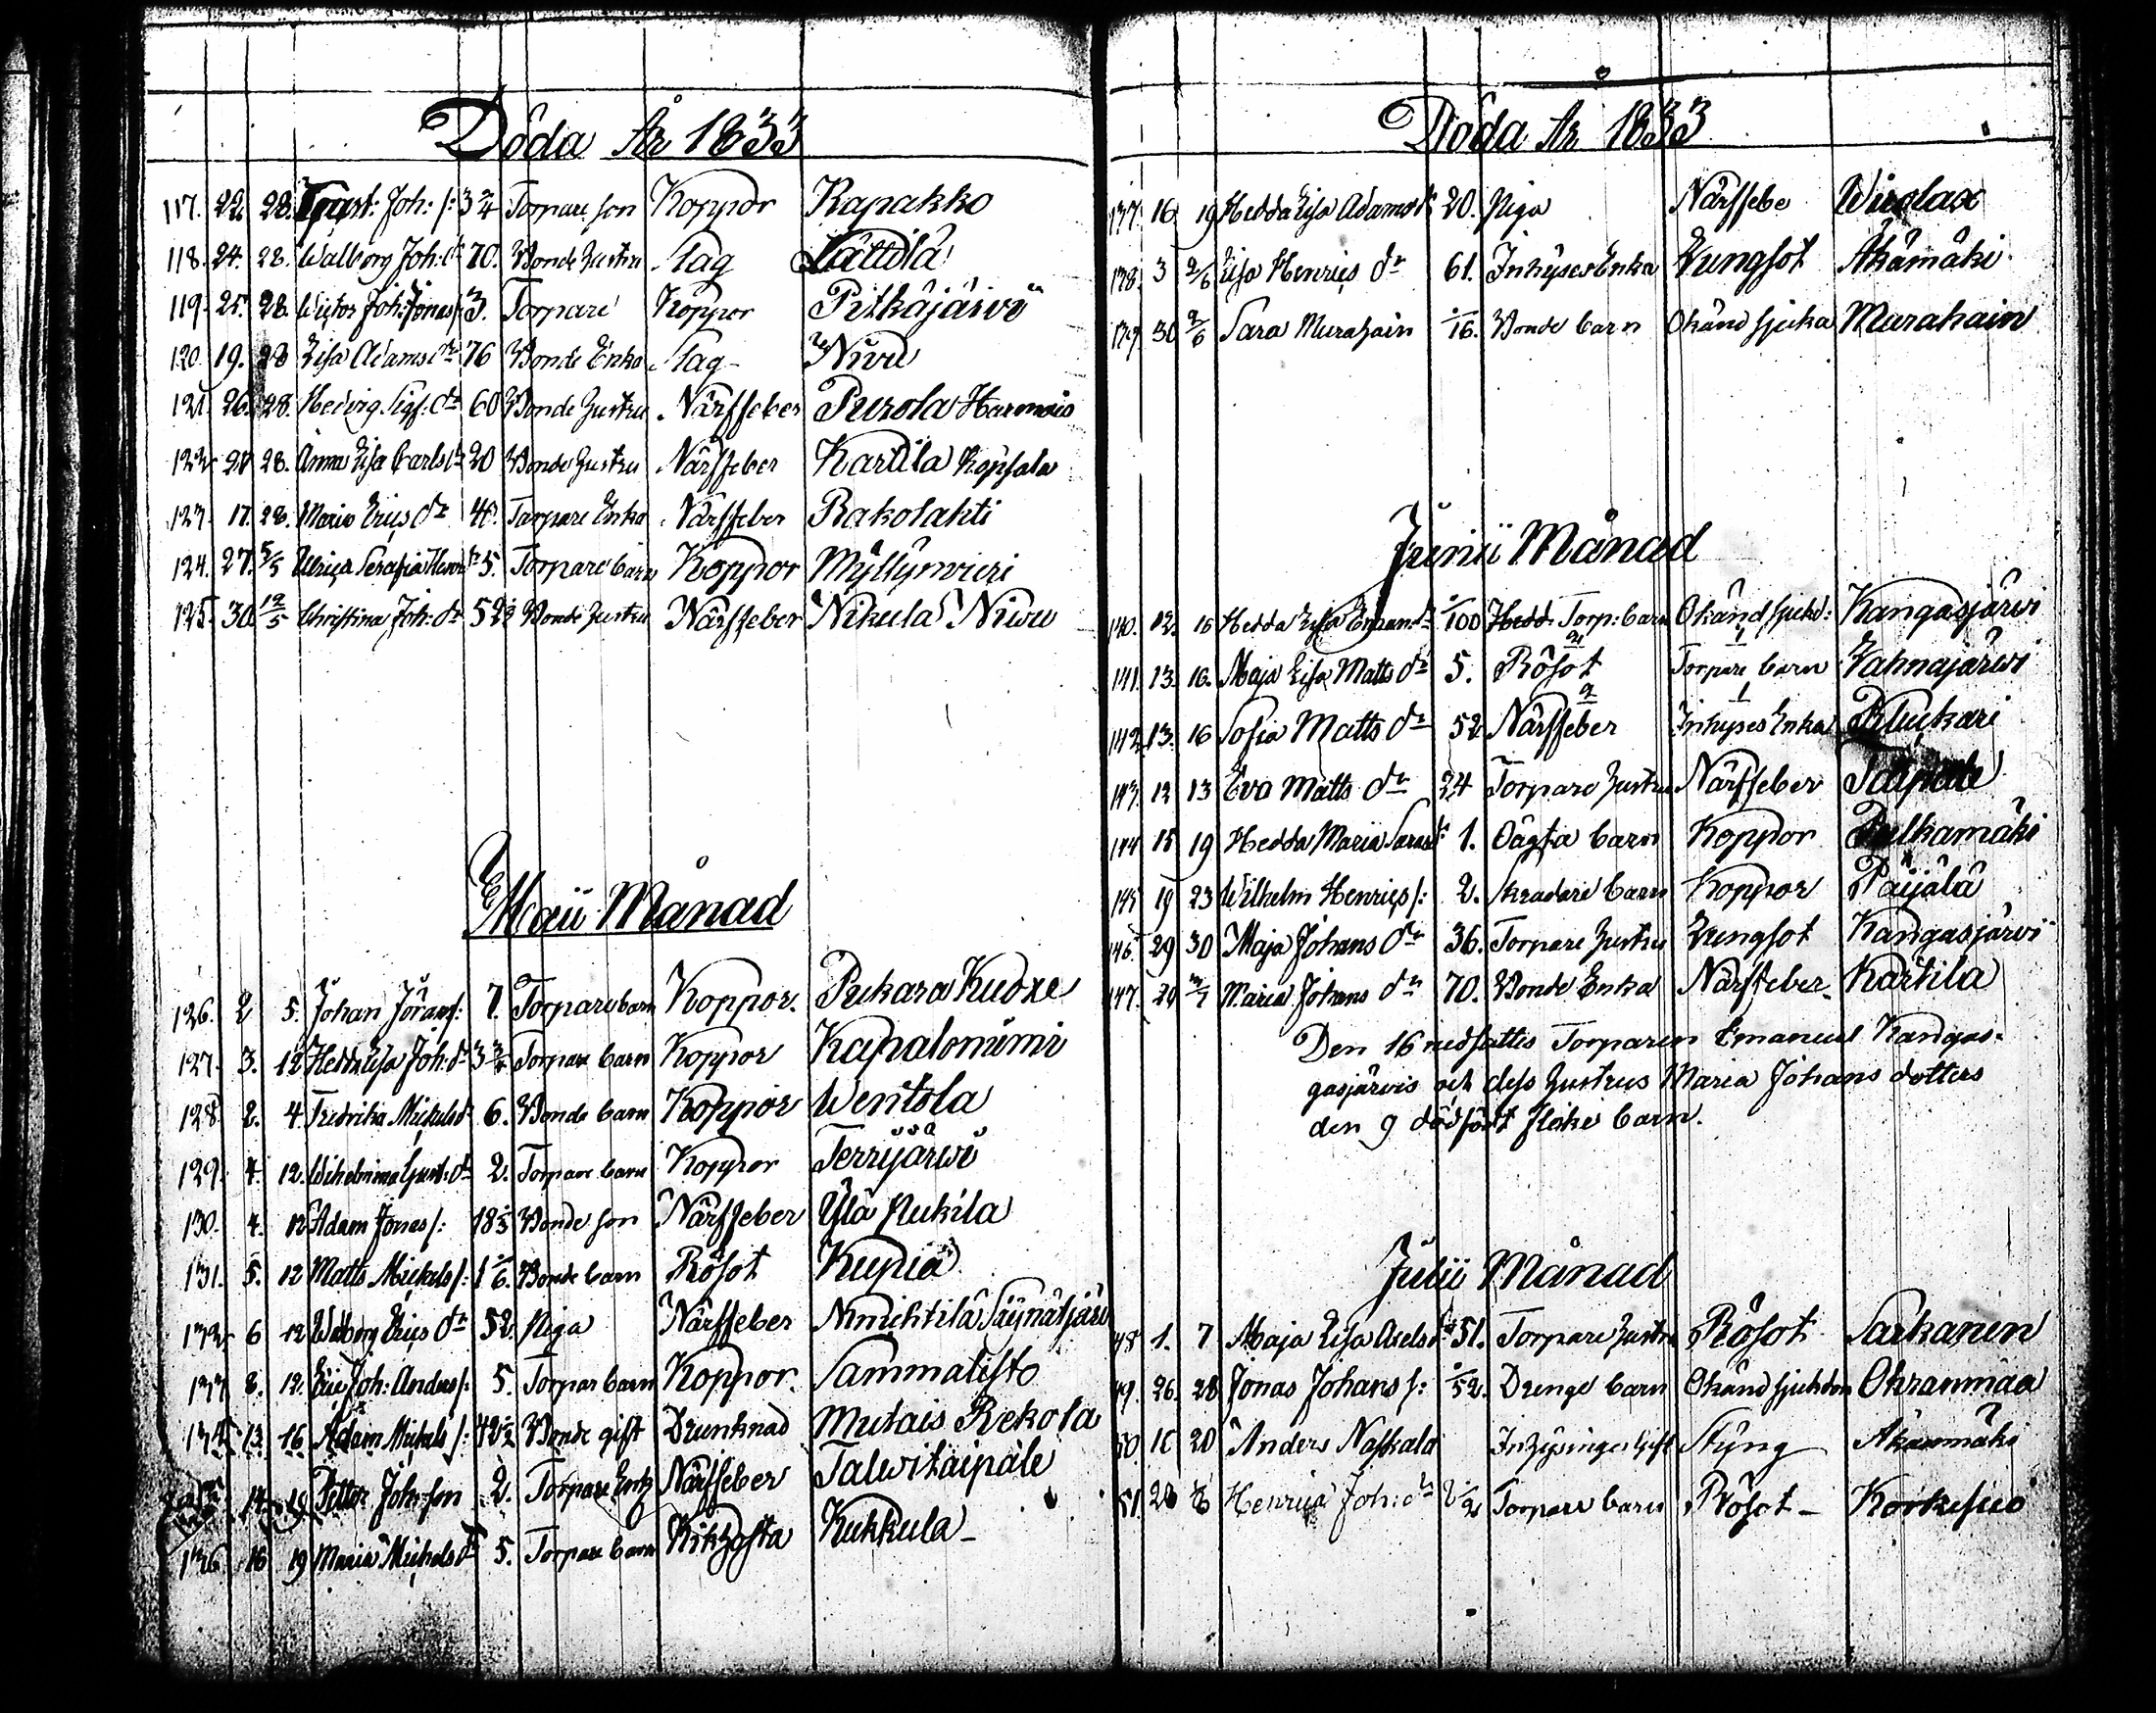 Döda År 1833
117. 22. 28. Gust: Joh: s: 3 3/4 Torpare son Koppor Rapakko
118. 24. 28. Walborg Joh: dr 70. Bonde hustru Slag Lattila
119. 25. 28. Victor Joh: Jonas s: 3. Torpare Koppor Pitkäjärvi
120. 19. 28 Lisa Adams dr 76 Bonde Enka Slag Nivu
121. 26. 28. Hedvig Sigf: dr 60 Bonde hustru Närffeber Purola Harmois
122. 28. Anna Lisa Carls dr 20 Bonde hustru Närffeber Kartila Kopsala
123. 17. 28. Maria Erics dr 40. Torpare Enka Närffeber Rakolahti
124. 27. 5/5 Ulrica Serafia Henr: dr 5. Torpare barn Koppor Myllynvieri
125. 30. 12/5 Christina Joh: dr 52 1/2 Bonde hustru Närffeber Nikula Niwu
Maii Månad
126. 2 5. Johan Jörans s: 7. Torpare barn Koppor. Pukara Kudre
127. 3. 12 Hedda Lisa Joh: dr 3 3/4 Torpare barn Koppor Kapaloniemi
128. 2. 4 Fredrika Mickels dr 6. Bonde barn Koppor Wentola
129. 4. 12. Wilhelmina Gust: dr 2. Torpare barn Koppor Terrijärwi
130. 4. 12 Adam Jonas s: 18 1/3 Bonde son Närffeber Ylä Nukila
131. 5. 12 Matts Mickels s: 1/6. Bonde barn Rösot Kupia
132. 6 12 Walborg Erics dr 52. Piga Närffeber Nimihtilä Säynätjärvi
133 8. 12. Eric Joh: Anders s: 5. Torpar barn Koppor. Sammalisto
134. 13. 16. Adam Mickels s: 42 1/2 Bonde gift Drunknad Mutais Rekola
14. 19. Petter Johnson 2. Torpare Närffeber Talvitaipale
136. 16 19 Maria Mickels dr 5. Torpare barn Kikhosta Kukkula
Döda År 1833
137. 16 19 Hedda Lisa Adams dr 20. Piga Närffebe Wirolax
138. 3 2/6 Lisa Henrics dr 61. Inhyses Enka Lungsot Äkämäki
139. 30 2/6 Sara Murahain 1/16. Bonde barn Okänd sjuka Murahain
Junii Månad
140. 12. 16 Hedda Lisa Eman: dr 1/100 Torp: barn Okänd sjukd: Kangasjärvi
141. 13. 16. Maja Lisa Matts dr 5. Rösot Torpare barn Lahnajärvi
142. 13. 16 Sofia Matts dr 52 Närffeber Inhyses Enka Pluckari
143. 12 13 Eva Matts dr 24 Torpare hustru Närffeber Taipale
144 15 19 Hedda Maria Saras dr 1. Oägta barn Koppor Pulkamäki
145 19 23 Wilhelm Henrics s: 2. Skradare barn Koppor Päijälä
146. 29 30 Maja Johans dr 36. Torpare hustru Lungsot Kangasjärvi
147. 29 7/7 Maria Johans dr 70. Bonde Enka Närffeber Kartila
Den 16 nedsattes Torparen Emanuel Kangas-
gasjärvis och dess hustrus Maria Johans dotters
den 9 dödfödt flicke barn.
Julii Månad
48 1. 7 Maja Lisa Axels dr 51. Torpare hustru Rösot Sarkanen
49. 26. 28 Jonas Johans s: 1/52. Drenge barn Okänd sjukdom Ohranmäa
50. 16 20 Anders Naskala Inhysinge Gift Styng Äkänmäki
51. 28 Henrica Joh: dr 2 1/2 Torpare barn Rösot Korkesuo